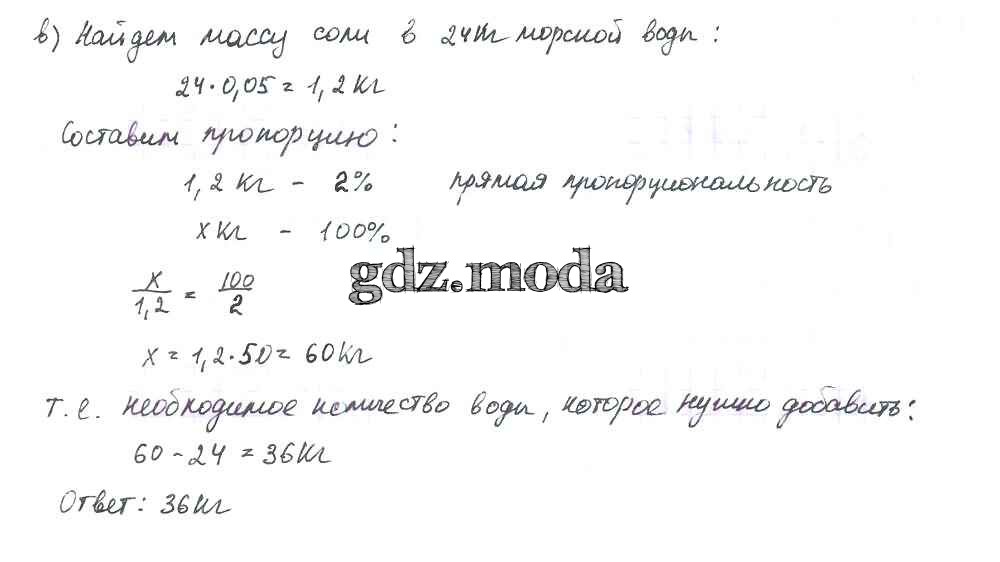 в) Найдем массу соли в 24кг морской воды:
24·0,05 = 1,2 кг
Составим пропорцию:
1,2 кг - 2% прямая пропорциональность
х кг - 100%
gdz.moda
х/1,2 = 100/2
х = 1,2·50 = 60 кг
т.е. необходимое количество воды, которое нужно добавить:
60 - 24 = 36 кг
Ответ: 36 кг